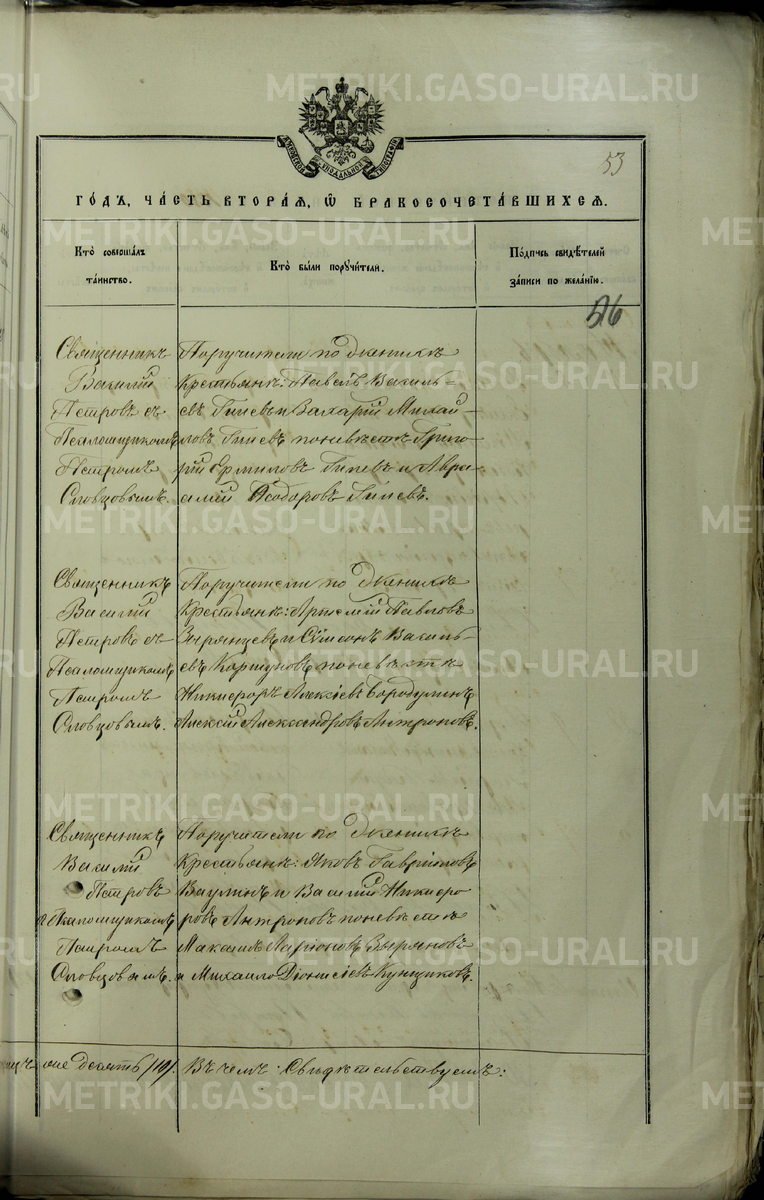 53
ГО́ДЪ, ЧА́СТЬ ВТОРА́Я, Ѡ҆ БРАКОСОЧЕТА́ВШИХСЯ.
Кто̀ соверша́лъ
та́инство.
Кто̀ бы́ли порꙋчи́тели.
По́дпись свидѣ́телей
за́писи по жела́нїю.
56
Священникъ
Василій
Петровъ съ
Псаломщикомъ
Петромъ
Словцовымъ.
Поручители по Женихѣ
Крестьян: Павелъ Василь-
евъ Гилевъ и Захарій Михай-
ловъ Гилевъ по невѣстѣ Григо-
рій Ермиловъ Гилевъ и Авра-
амій Ѳедоровъ Гилевъ.
Священникъ
Василій
Петровъ съ
Псаломщикомъ
Петромъ
Словцовымъ.
Поручители по Женихѣ
Крестьян: Артемій Павловъ
Зырянцевъ и Сѵмеонъ Василь-
евъ Коршуновъ, по невѣстѣ
Никифоръ Алексіевъ Бородулинъ,
Алексій Александровъ Антроповъ.
Священникъ
Василій
Петровъ
Псаломщикомъ
Петромъ
Словцовымъ.
Поручители по Женихѣ
Крестьян: Яковъ Гавріиловъ
Ваулинъ и Василій Никифо
ровъ Антроповъ по невѣстѣ
Максимъ Ларіоновъ Зыряновъ
и Михаило Діонисіевъ Кунщиковъ.
Десять /10/. Въ чемъ: Свидѣтельствуемъ:
METRIKI.GASO-URAL.RU